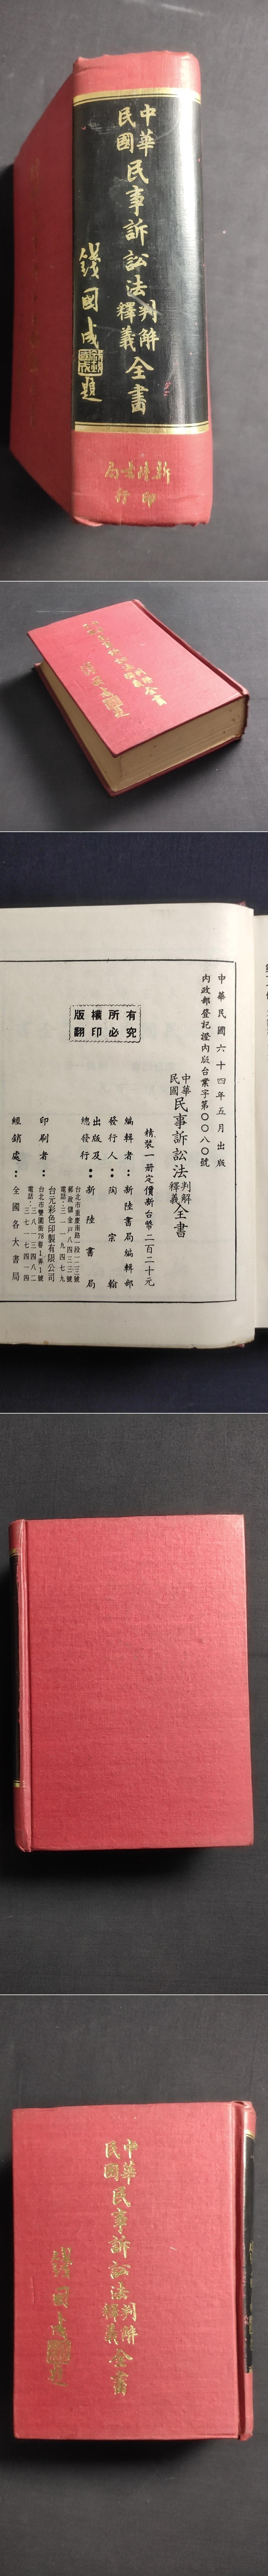 中華
民國
民事訴訟法
判解
釋義
全書
錢國成題
新陸書局
印行
中華
民國
民事訴訟法
判解
釋義
全書
中華民國六十四年五月出版
內政部登記證內版台業字第〇〇八〇號
中華
民國
民事訴訟法
判解
釋義
全書
精裝一册定價新台幣二百二十元
有究
所必
權印
版翻
編輯者：新陸書局編輯部
發行人：陶宗翰
出版及
總發行：新陸書局
台北市重慶南路一段一二三號
郵政儲金戶八四三三號
印刷者：台元彩色印製有限公司
台北市雙園街78巷1弄1號
經銷處：全國各大書局
中華
民國
民事訴訟法
判解
釋義
全書
錢國成題